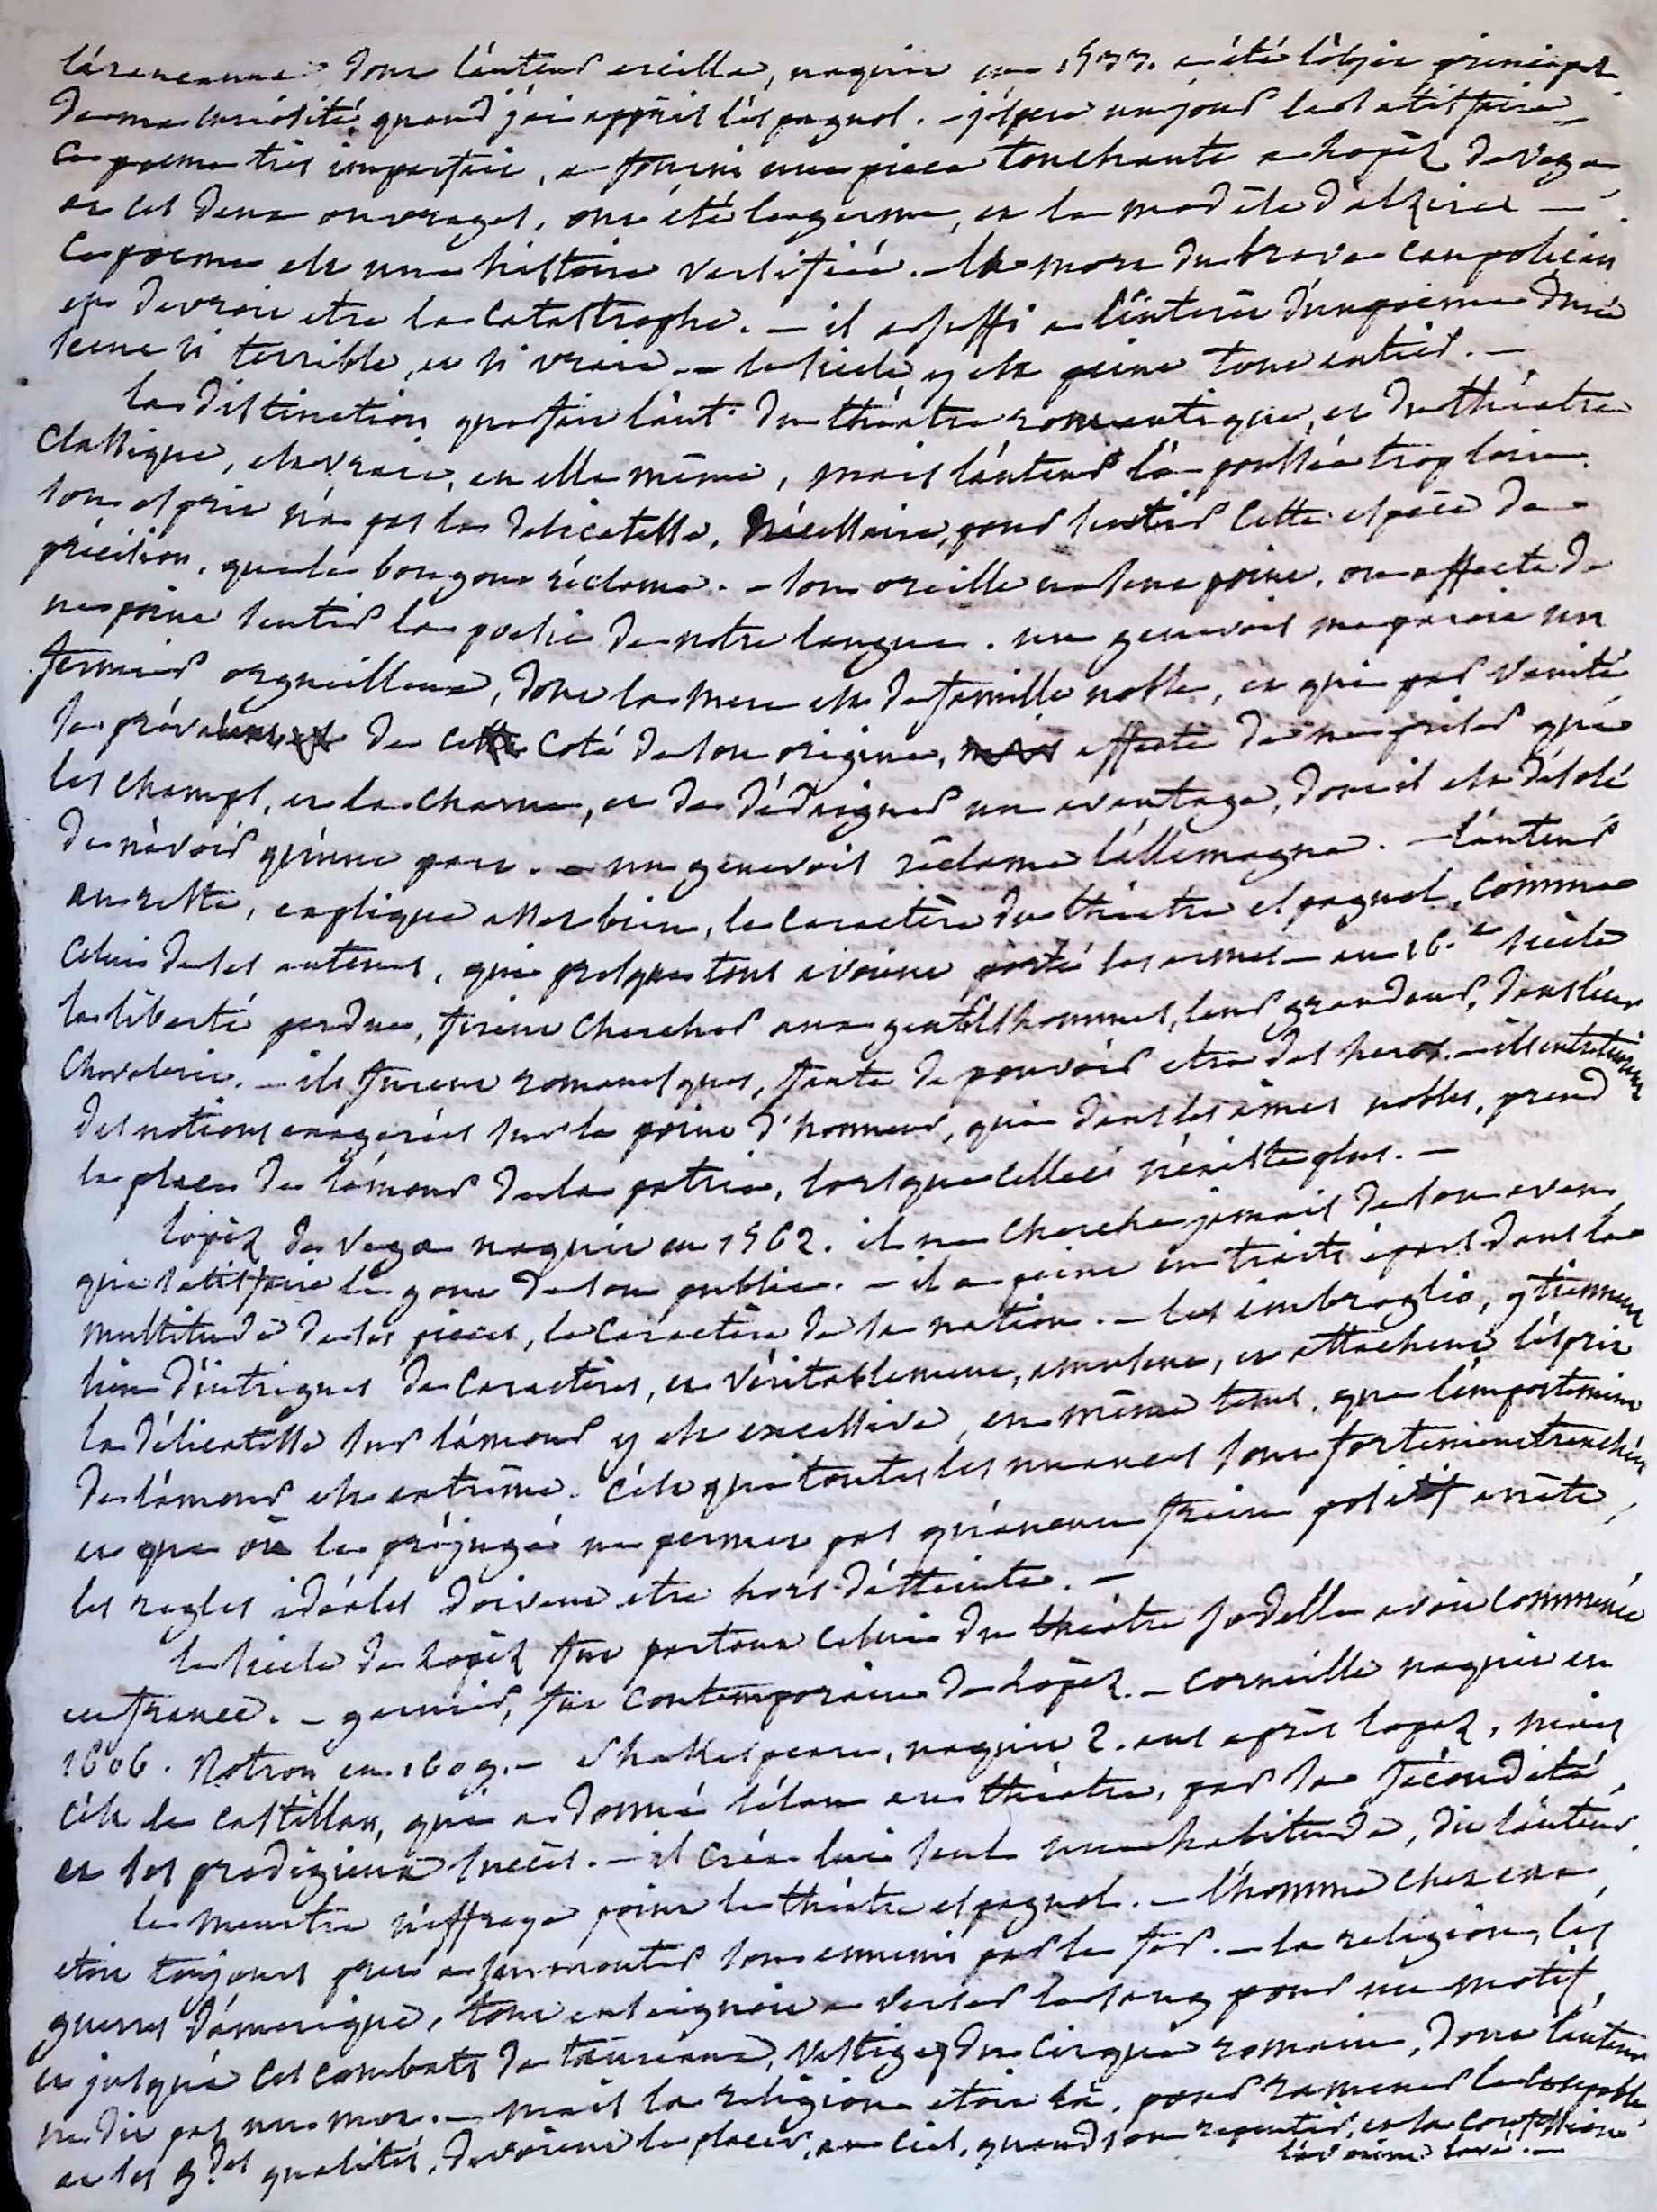 l'araucanna dont l'auteur ercilla, naquit en 1533. a été l'objet principal
de ma curiosité quand j'ai appris l'espagnol. – j'espere un jour la satisfaire
ce poeme très imparfait, a fourni une piece touchante a lopèz de vega
et ces deux ouvrages, ont été le germe, et le modèle d'alzire –
ce poeme est une histoire versifiée. – la mort du brave caupolican
en devroit etre la catastrophe. – il a suffi a l'intérêt d'un poeme d'une
scene si terrible, et si vraie. – le siecle y est peint tout entier. –
la distinction que fait l'aut. du théatre romantique, et du théatre
classique, est vraie, en elle même, mais l'auteur l'a poussée trop loin.
son esprit n'a pas la délicatesse, nécessaire, pour sentir cette espèce de
précision, que le bon gout réclame. – son oreille ne sent point, ou affecte de
ne point sentir la poesie de notre langue. un genevois me paroit un
fermier orgueilleux, dont la mere est de famille noble, et qui par vanité
se de ce coté de son origine, affecte de ne priser que
les champs, et la charrue, et de dédaigner un avantage, dont il est désolé
de n'avoir qu'une part. – un genevois réclame l'allemagne. – l'auteur
au reste, explique assez bien, le caractère du théatre espagnol, comme
celui de ses auteurs, qui presque tous avoient porté les armes – au 16.e siècle
la liberté perdue, firent chercher aux gentilshommes, leur grandeur, dans leur
chevalerie. – ils furent romanesques, faute de pouvoir etre des heros. – ils entretinrent
des notions exagerées sur le point d'honneur, qui dans les âmes nobles, prend
la place de l'amour de la patrie, lorsque celleci n'existe plus. –
lopèz de vega naquit en 1562. il ne chercha jamais de son aveu
qu'a satisfaire le gout de son public. – il a peint en traits épars dans la
multitude de ses pieces, le caractère de sa nation. – les imbroglio, y tiennent
lieu d'intrigues de caractères, et véritablement, amusent, et attachent l'esprit
la délicatesse sur l'amour y est excessive, en même tems, que l'emportement
de l'amour est extrême. c'est que toutes les nuances sont fortement tranchées
et que où le préjugé ne permet pas qu'aucun frein positif arrête,
les regles idéales doivent etre hors d'atteinte. –
le siecle de lopèz fut partout celui du théatre jodelle avoit commencé
en france. – garnier, fut contemporain de lopèz. – corneille naquit en
1606. Rotrou en 1609. – Shakespeare, naquit 2. ans après lopez, mais
c'est le castillan, qui a donné l'élan au théatre, par sa fécondité,
et ses prodigieux succès. – il créa lui seul une habitude, dit l'auteur
le meurtre n'effraye point le théatre espagnol. – l'homme chez eux
etoit toujours pret a surmonter son ennemi par le fer. – la religion, les
guerres d'amerique, tout enseignoit a verser le sang pour un motif,
et jusqu'a ces combats de taureaux, vestiges du cirque romain, dont l'auteur
ne dit pas un mot. – mais la religion etoit là, pour ramener le coupable,
et les g.des qualités, devoient le placer, au ciel, quand son repentir, et la confession
l'avoient lavé. –